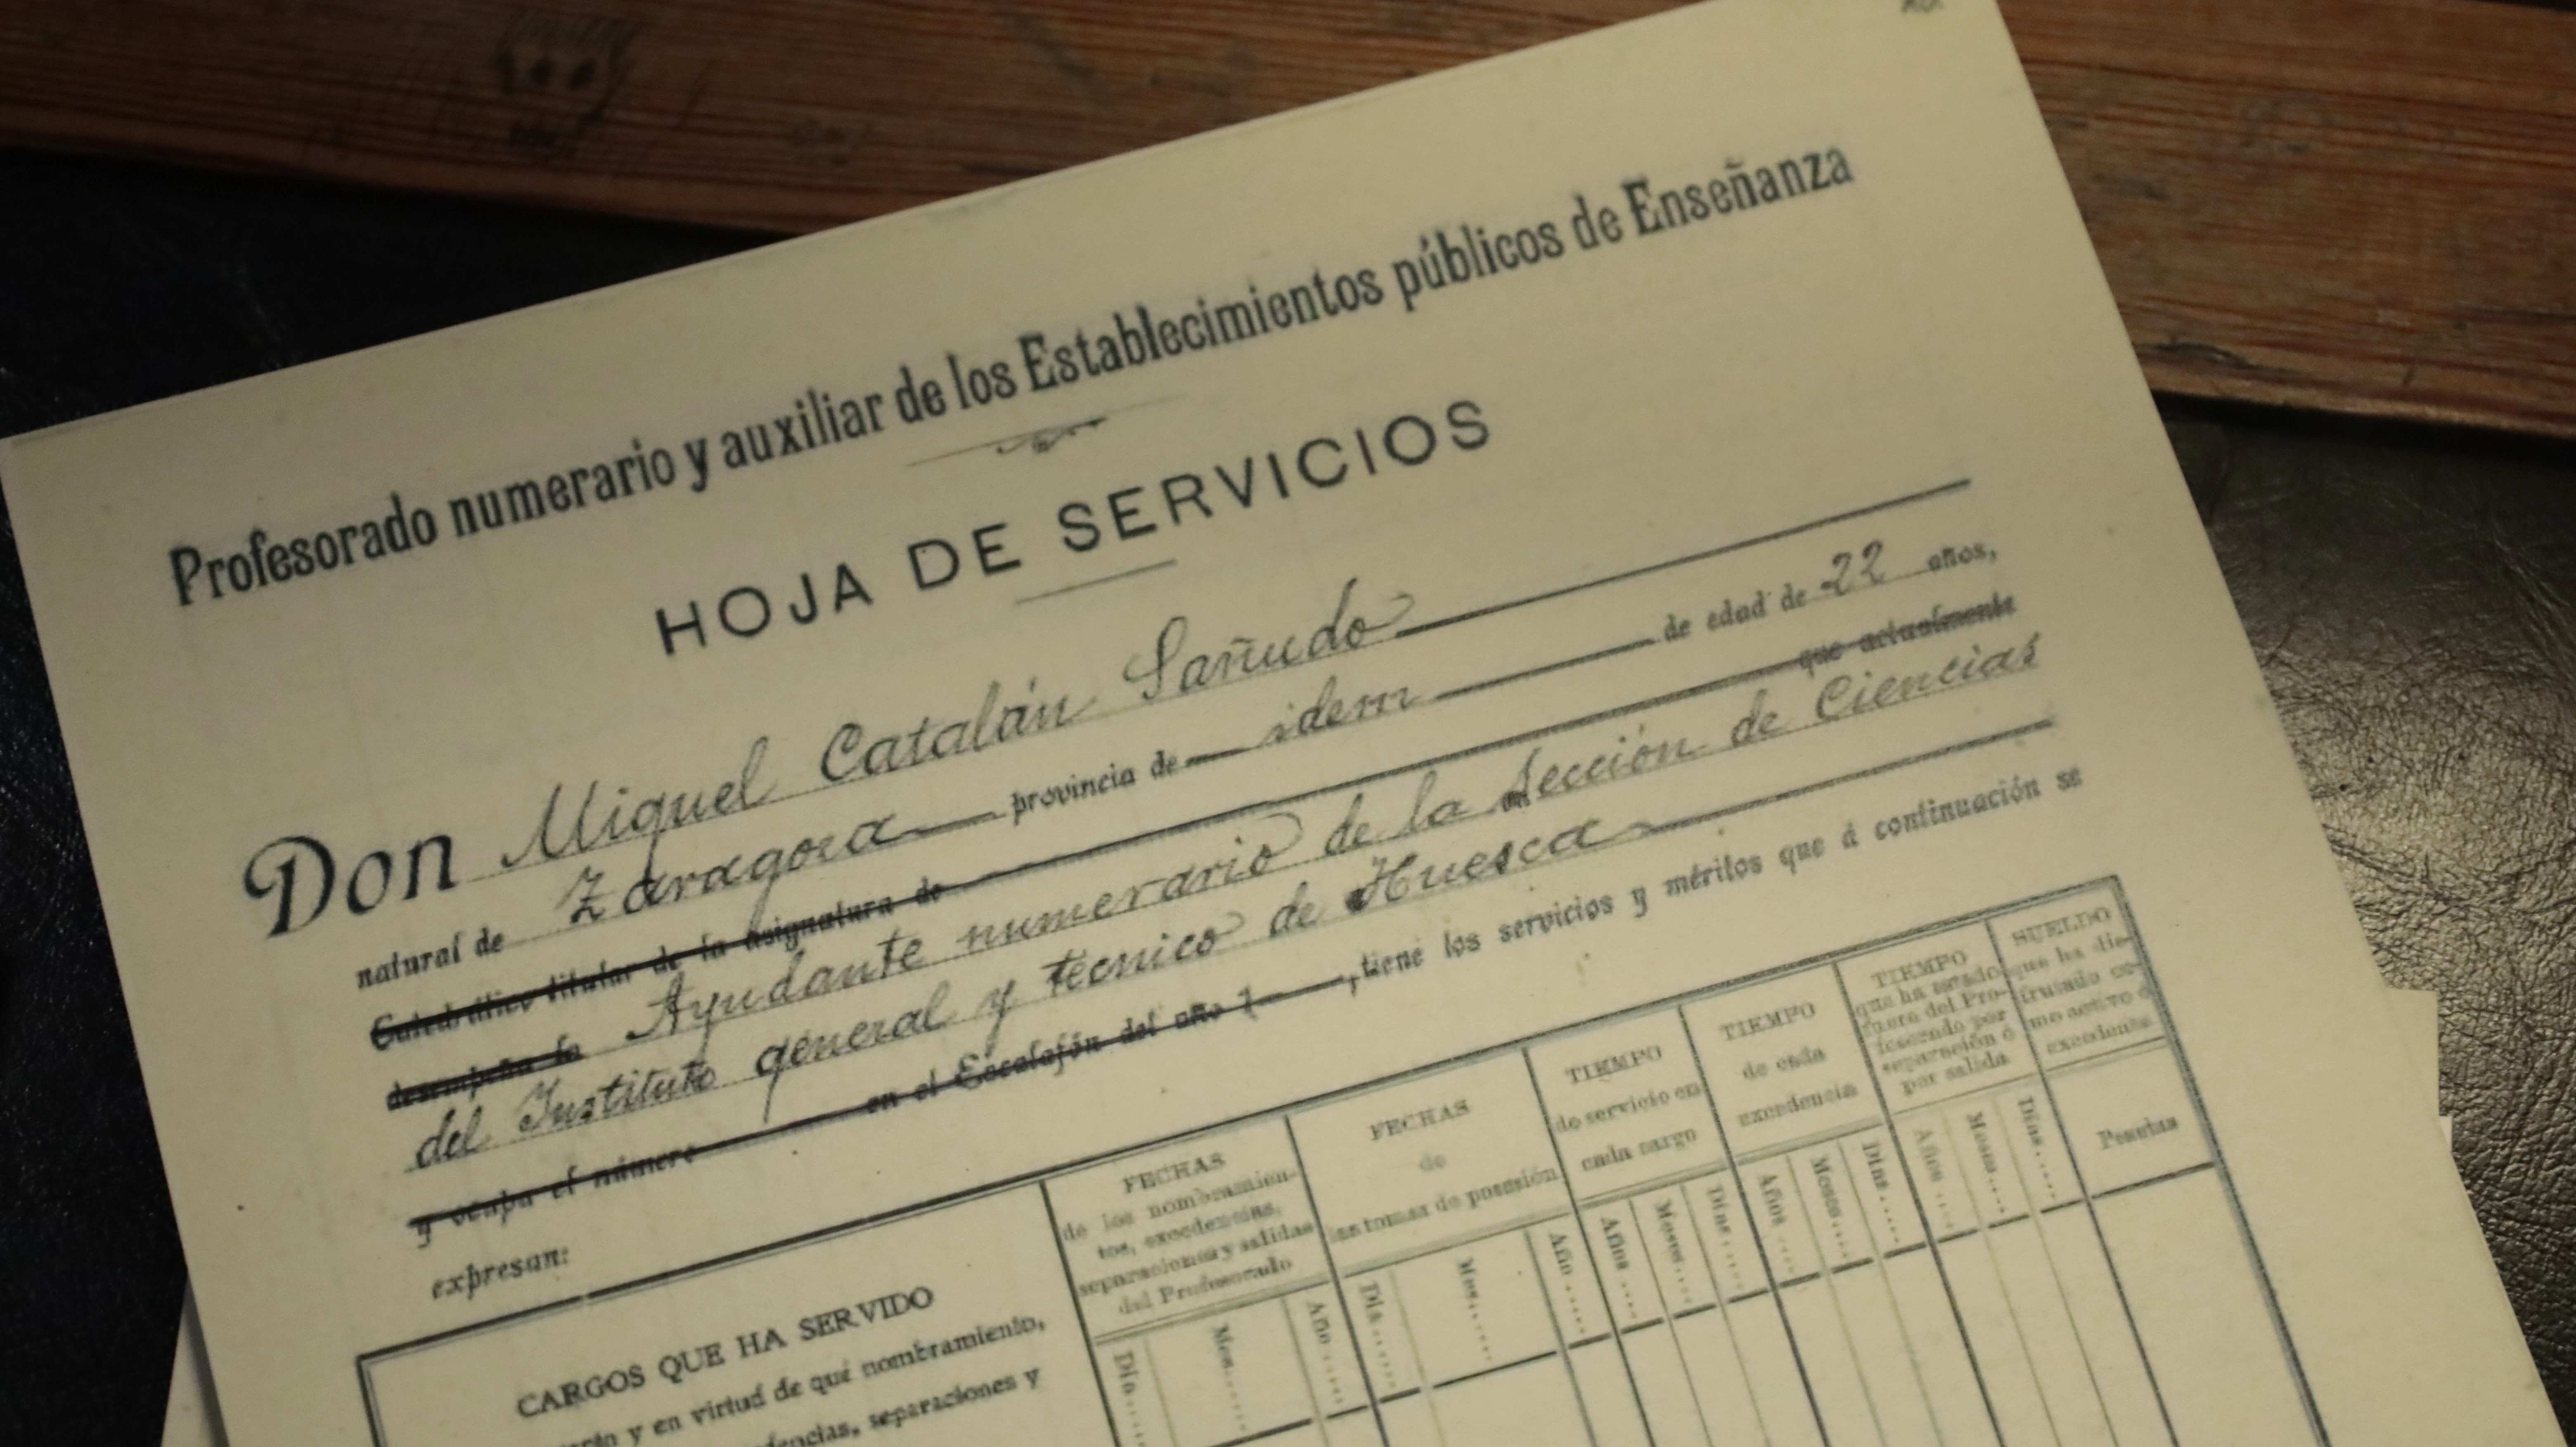 Profesorado numerario y auxiliar de los Establecimientos públicos de Enseñanza
HOJA DE SERVICIOS
Don Miguel Catalán Sañudo
natural de Zaragoza provincia de idem de edad de 22 años,
Catedrático titular de la asignatura de que actualmente
desempeña la Ayudante numerario de la Sección de Ciencias
del Instituto general y técnico de Huesca
y ocupa el número en el Escalafón del año 1 , tiene los servicios y méritos que á continuación se
expresan:
CARGOS QUE HA SERVIDO
y en virtud de qué nombramiento,
separaciones y
FECHAS
de los nombramien-
tos, excedencias,
separaciones y salidas
del Profesorado
Día
Mes
Año
FECHAS
de
las tomas de posesión
Día
Mes
Año
TIEMPO
de servicio en
cada cargo
Años
Meses
Días
TIEMPO
de cada
excedencia
Años
Meses
Días
TIEMPO
que ha estado
fuera del Pro-
fesorado por
separación ó
por salida
Años
Meses
Días
SUELDO
que ha dis-
frutado co-
mo activo ó
excedente
Pesetas